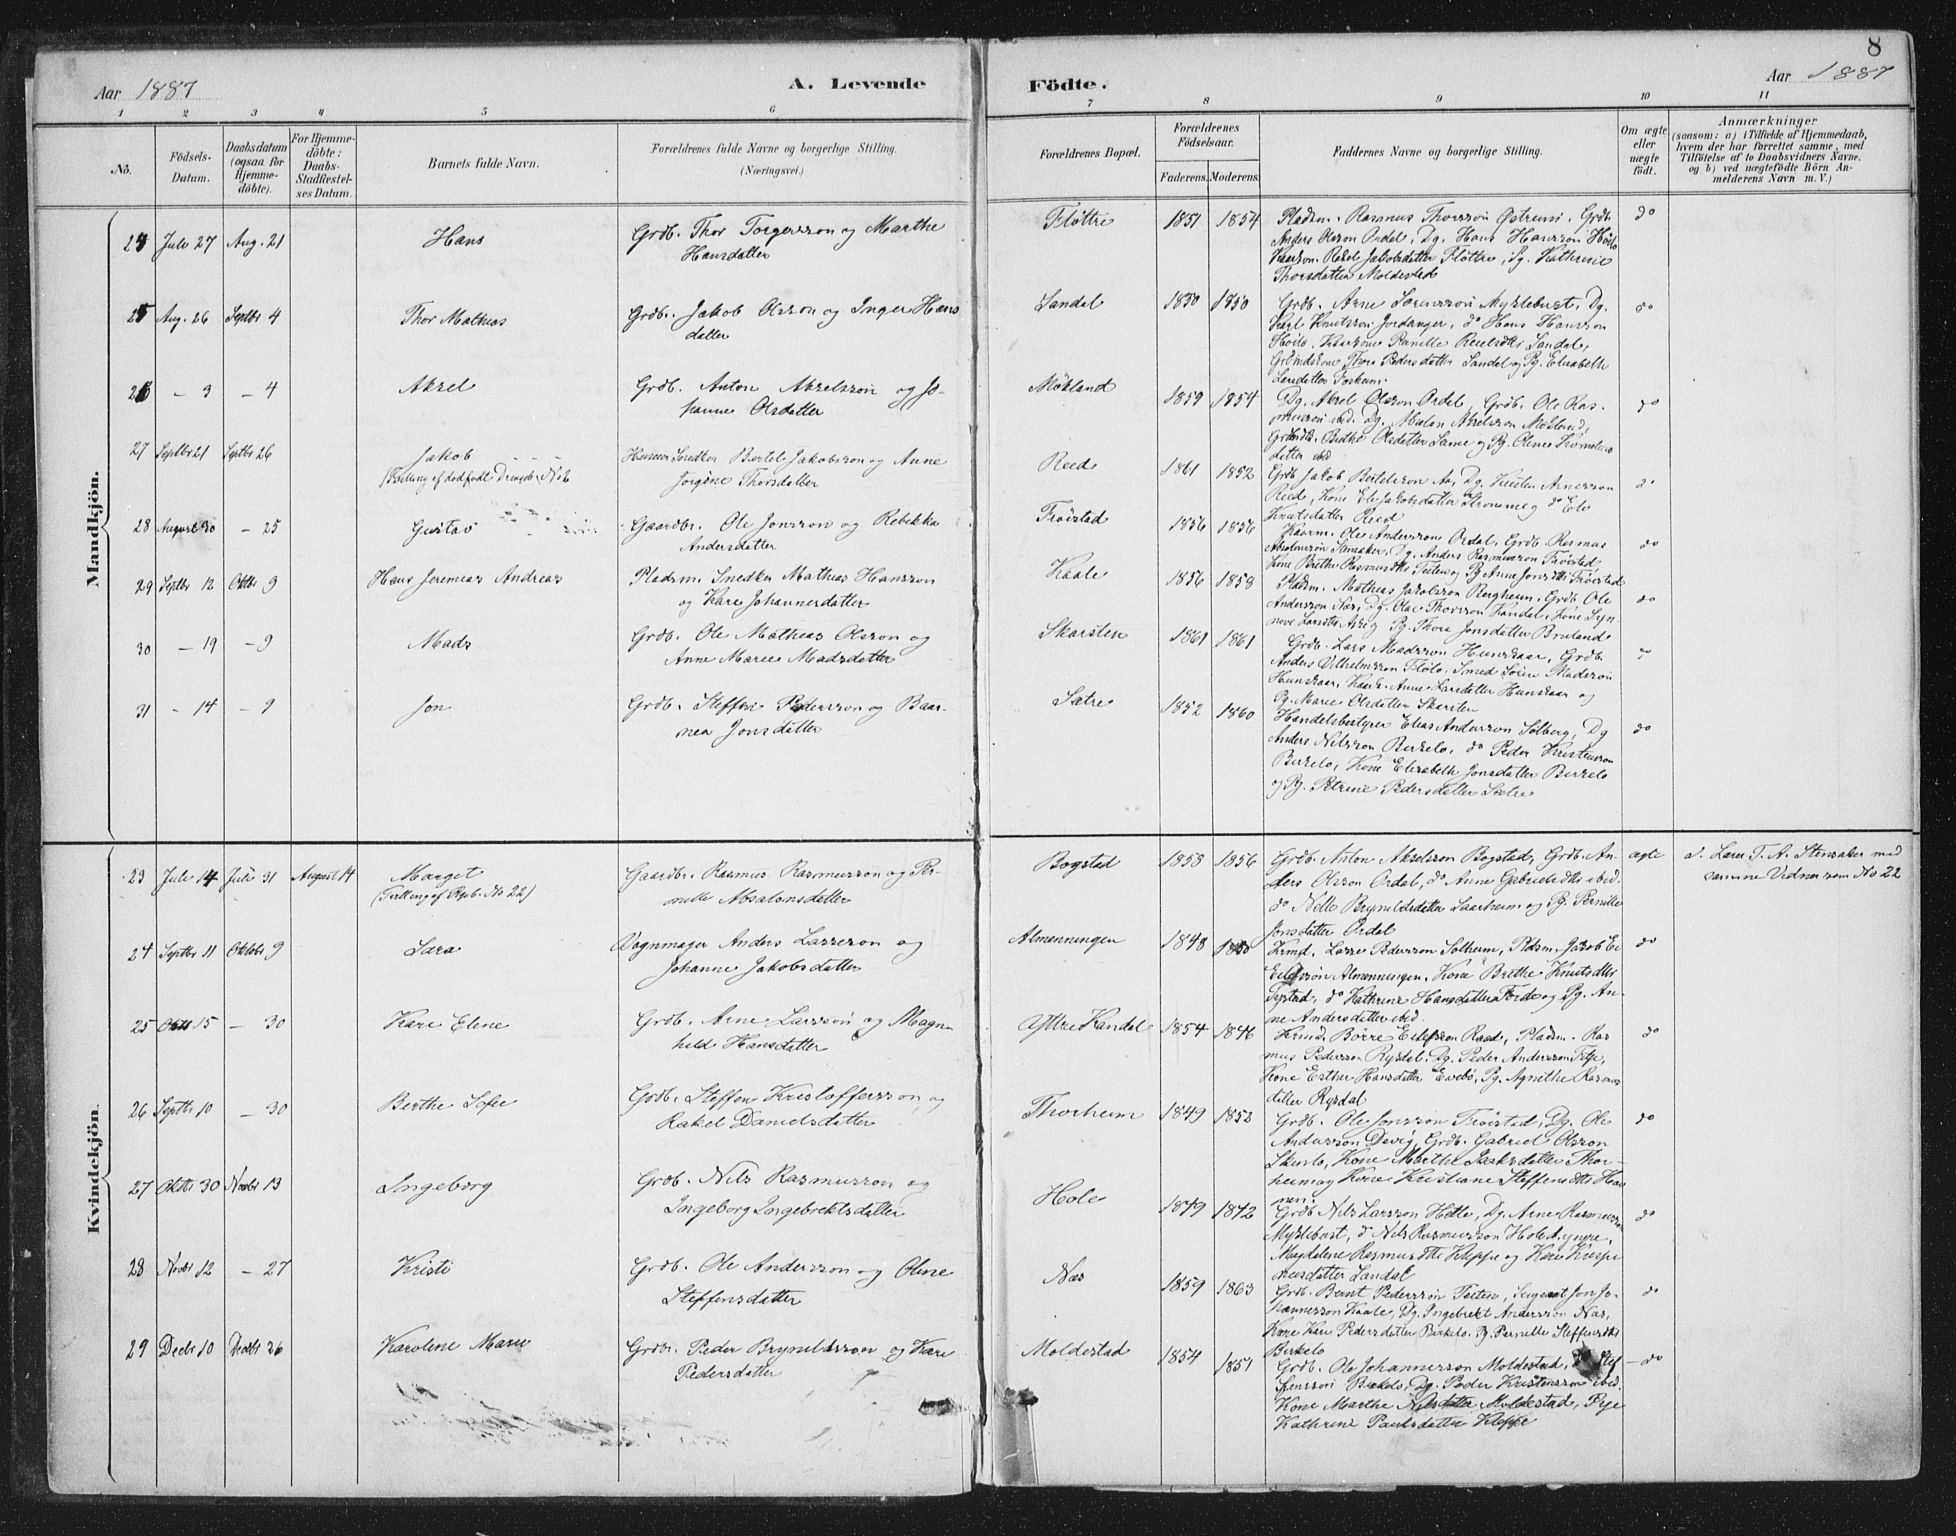 8
Aar 1887
A. Levende
Födte.
Aar 1887
1 2 3 4 5 6 7 8 9 10 11
No.
Födsels-
Datum.
Daabsdatum
(ogsaa för
Hjemme-
döbte).
For Hjemme-
döbte:
Daabs-
Stadfæstel-
ses Datum.
Barnets fulde Navn.
Forældrenes fulde Navne og borgerlige Stilling.
(Næringsvei.)
Forældrenes Bopæl.
Forældrenes
Födselsaar.
Faderens. Moderens.
Faddernes Navne og borgerlige Stilling.
Om ægte
eller
uægte
födt.
Anmærkninger
(saasom: a) i Tilfælde af Hjemmedaab,
hvem der har forrettet samme, med
Tilföielse af to Daabsvidners Navne,
og b) ved uægtefödte Börn An-
melderens Navn m. V.)
Mandkjön.
24 Juli 27 Aug. 21 Hans Grdb. Thor Torgersson og Marthe
Hansdatter
Fløttre 1851 1854 Pladsm. Rasmus Thorsson Østrum, Grdb.
Anders Olsson Ordal, Dg. Hans Hansson Høilo
Thorsdatter Moldestad
do
25 Aug. 26 Septbr 4 Thor Mathias Grdb. Jakob Olsson og Inger Hans
datter
Sandal 1850 1850 Grdb. Arne Sørensson Myklebust, Dg.
Karl Knutsson Jordanger, do Hans Hansson
Høilo, Sandal,
Sandal og Pg. Elisabeth
Larsdatter
do
26 – 3 – 4 Aksel Grdb. Anton Akselsson og Jo-
hanne Olsdatter
Møkland 1859 1854 Dg. Aksel Olsson Ordal, Grdb. Ole Ras-
musson ibid. Dg.
datter ibid
do
27 Septbr 21 Septbr 26 Jakob
Huusmr Snedker Bertel Jakobsson og Anne
Jorgine Thorsdatter
Reed 1861 1852 Grdb Jakob Bertelsson Aa, Dg. Kristen Arnesson
Reed, Kone Eli Jakobsdatter
Knutsdatter Reed
do
28 August 30 – 25 Gustav Gaardbr. Ole Jonsson og Rebekka
Andersdatter
Trøistad 1856 1856 Ole Andersson Ordal, Grdb. Rasmus
Absalonsson Stensaker, Dg. Anders Rasmusson Trøistad
do
29 Septbr 12 Oktbr 9 Hans Jeremias Andreas Pladsm. Snedker Mathias Hansson
og Kari Johannesdatter
Kaale 1856 1858 Pladsm. Mathias Jakobsson Bergheim, Grdb. Ole
Andersson Næs, Dg. Olai Thorsson Kandal, Kone Syn-
Pg. Thora Jonsdatter Brulande
do
30 – 19 – 9 Mads Grdb. Ole Mathias Olsson og
Anne Marie Madsdatter
Skarsten 1861 1861 Grdb. Lars Madsson Hunskaar, Grdb.
Anders Vilhelmsson Fløilo, Smed Søren Madsson
Hunskaar, Anne Larsdatter Hunskaar og
Pg. Marie Olsdatter Skarsten
do
31 – 14 – 9 Jon Grdb. Steffen Pedersson og Baar-
nea Jonsdatter
Sætre 1852 1860 Handelsbestyrer Elias Andersson Solberg, Dg
Anders Nilsson Birkelo, do Peder Kristensson
Birkelo, Kone Elisabeth Jonsdatter Birkelo
og Pg. Petrine Pedersdatter Sætre
do
Kvindekjön.
23 Juli 14 Juli 31 August 14 Marget
(Tvilling af Pgb. No 22)
Gaardbr. Rasmus Rasmusson og Per-
nille Absalonsdatter
Bogstad 1858 1856 Grdb. Anton Akselsson Bogstad, Grdb. An-
ders Olsson Ordal, do Anne Gabrielsdtr ibid.
do Nille Brynildsdatter Saarheim og Pg. Pernille
Jonsdatter Ordal
ægte
d. Lærer T. A. Stensaker med
samme Vidner som No 22
24 Septbr 11 Oktobr 9 Sara Vognmager Anders Lassesson og
Johanne Jakobsdatter
Almenningen 1848 1850 Krmd. Lasse Pedersson Solheim, Pldsm. Jakob Ei
Almenningen, Kone Brithe Knutsdtr
do Kathrine Hansdatter Førde og Pg. An-
ne Andersdatter ibid.
do
25 Oktbr 15 – 30 Kari Eline Grdb. Arne Larsson og Magn-
hild Hansdatter
Yttre Kandal 1854 1846 Krmd. Børre Eilifsson Raad, Pladm. Ras
mus Pedersson Rysdal, Dg. Peder Andersson
Kone Esther Hansdatter Evebø, Pg. Agnithe Rasmus
datter Rysdal
do
26 Septbr 10 – 30 Berthe Sofie Grdb. Steffen Kristoffersson og
Rakel Danielsdatter
Thorheim 1849 1853 Grdb. Ole Jonsson Trøistad, Dg. Ole
Andersson Devig, Grdb. Gabriel Olsson
Kone Marthe Isaksdatter Thor-
heim og Kone Kristiane Steffensdtr
do
27 Oktbr 30 Novbr 13 Ingeborg Grdb. Nils Rasmusson og
Ingeborg Ingebrektsdatter
Hole 1849 1842 Grdb Nils Larsson Hetle, Dg. Arne Rasmusson
Myklebust, do Nils Rasmusson Hole d. yngre,
Magdalene Rasmusdtr Kleppe og Kari Kaspe
riusdatter Sandal
do
28 Novbr 12 – 27 Kristi Grdb. Ole Andersson og Oline
Steffensdatter
Næs 1859 1863 Grdb. Bernt Pedersson Teiten, Sergeant Jon Jo-
hannesson Kaale, Dg. Ingebrekt Andersson Næs,
Kone Kari Pedersdatter Birkelo. Pg. Pernille Steffensdtr
Birkelo
do
29 Decbr 10 Decbr 26 Karolene Marie Grdb. Peder Brynildsson og Kari
Pedersdatter
Moldestad 1854 1851 Grdb. Ole Johannesson Moldestad, do Stef
fensson Birkelo, Dg. Peder Kristensson ibid.
Kone Marthe Nilsdatter Moldestad, Pige
Kathrine Paulsdatter Kleppe
– do